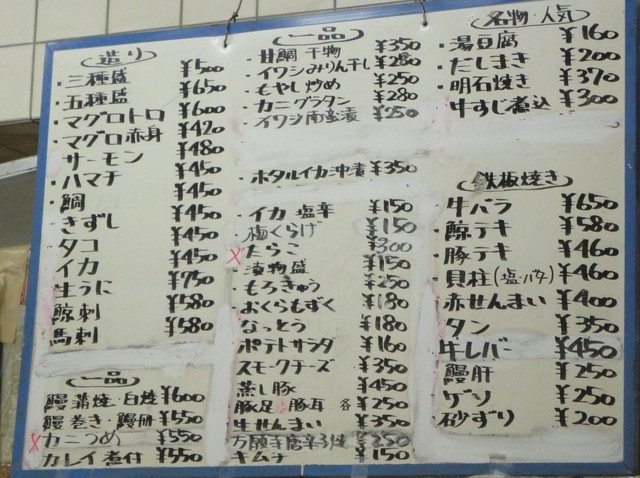 造り
・三種盛 ¥500
・五種盛 ¥650
・マグロトロ ¥600
・マグロ赤身 ¥420
サーモン ¥480
・ハマチ ¥450
・鯛 ¥450
きずし ¥450
タコ ¥450
イカ ¥450
生うに ¥750
鯨刺 ¥580
馬刺 ¥580
一品
鰻蒲焼・白焼 ¥600
鰻巻き・鰻冊 ¥550
×カニつめ ¥550
カレイ煮付 ¥550
一品
・甘鯛干物 ¥350
・イワシみりん干し ¥280
・もやし炒め ¥250
・カニグラタン ¥280
・イワシ南蛮漬 ¥250
・ホタルイカ沖漬 ¥350
・イカ塩辛 ¥150
・梅くらげ ¥150
×たらこ ¥300
・漬物盛 ¥150
・もろきゅう ¥250
おくらもずく ¥180
なっとう ¥180
ポテトサラダ ¥160
スモークチーズ ¥350
蒸し豚 ¥450
豚足 豚耳 各¥250
生せんまい ¥350
万願寺唐辛子焼 ¥250
キムチ ¥150
名物・人気
・湯豆腐 ¥160
・だしまき ¥200
・明石焼き ¥370
・牛すじ煮込 ¥300
鉄板焼き
・牛バラ ¥650
・鯨テキ ¥580
・豚テキ ¥460
・貝柱(塩・バタ) ¥460
・赤せんまい ¥400
・タン ¥350
・牛レバー ¥450
・鰻肝 ¥250
・ゲソ ¥250
・砂ずり ¥200